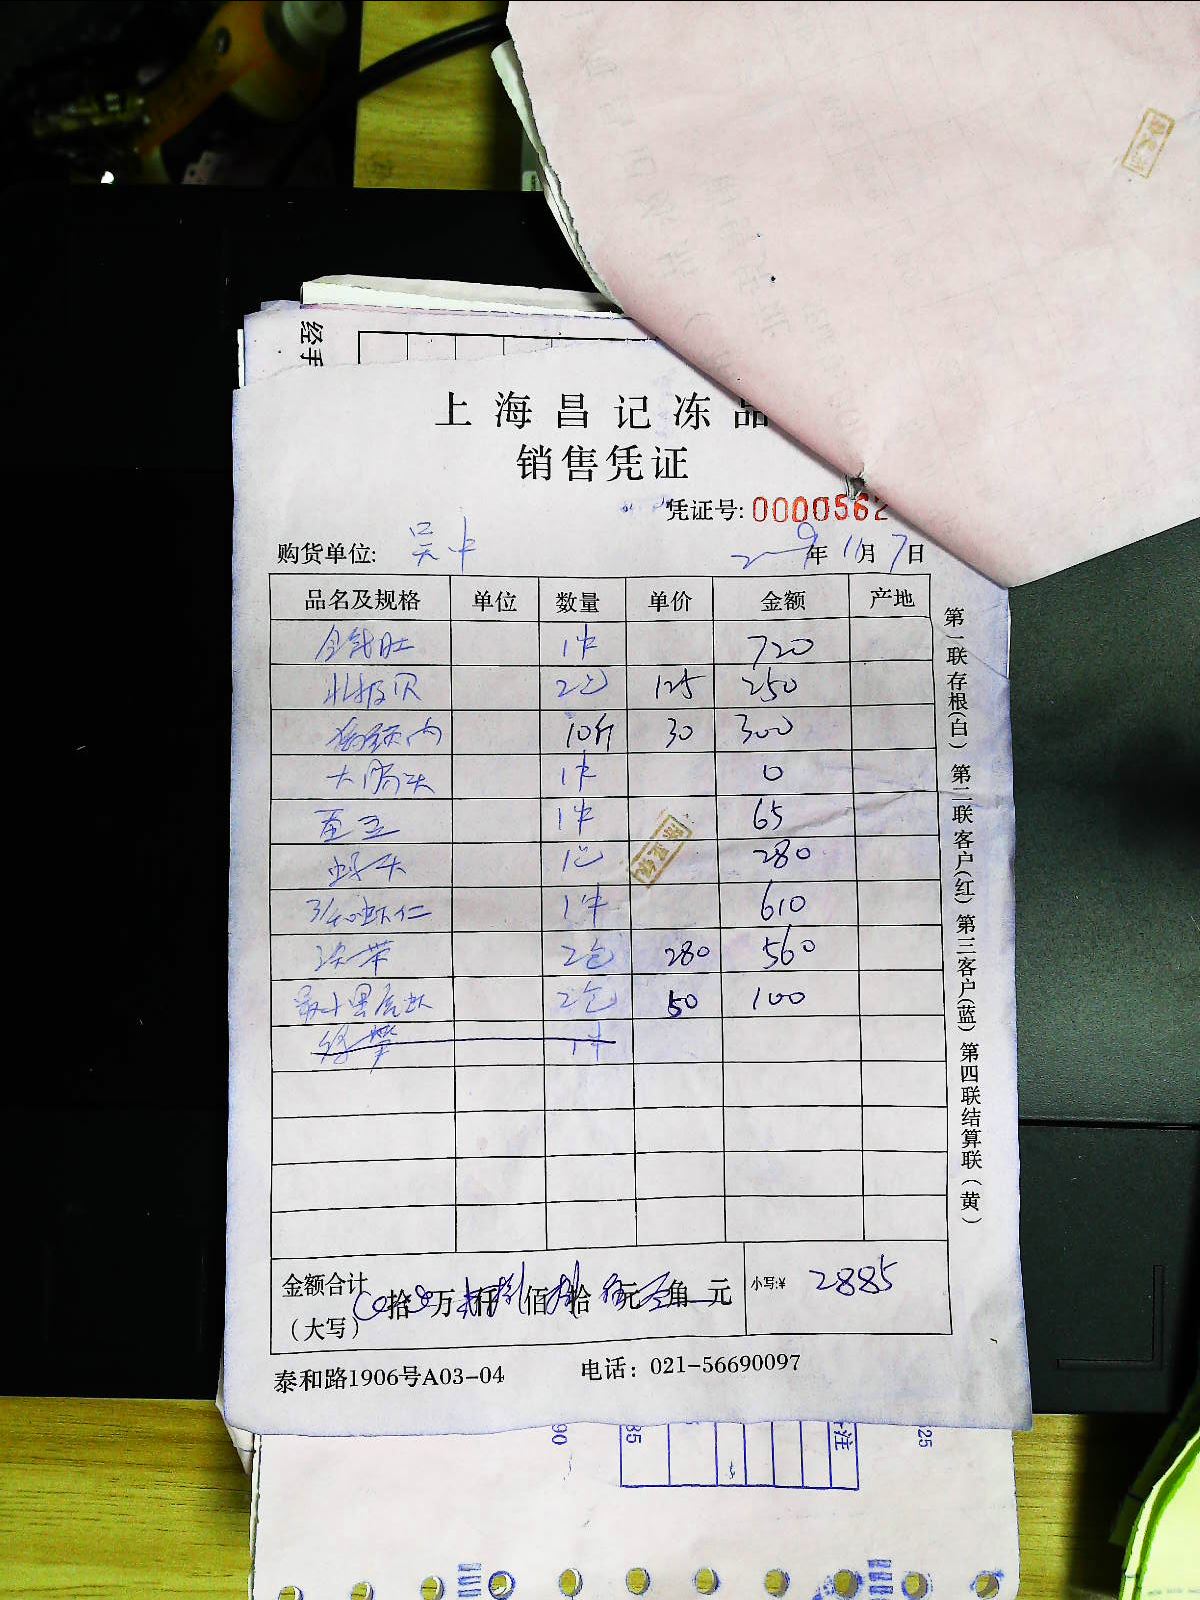 经手
上海昌记冻品
销售凭证
凭证号: 0000562
购货单位: 吴中 年 11月 7日
品名及规格 单位 数量 单价 金额 产地
金钱肚 1件 720
北极贝 2包 125 250
猪颈肉 10斤 30 300
大肠头 1件 0
1件 65
1包 280
31/40虾仁 1件 610
2包 280 560
2包 50 100
1件
金额合计
(大写) 拾 万 仟 佰 拾 元 角 元 小写:¥ 2885
泰和路1906号A03-04 电话: 021-56690097
第一联存根(白) 第二联客户(红) 第三客户(蓝) 第四联结算联(黄)
90 35 注 25